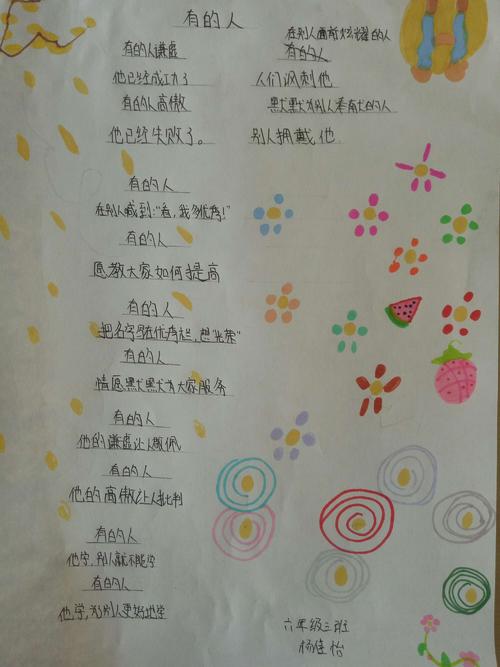 有的人
有的人谦虚
他已经成功了
有的人高傲
他已经失败了。
有的人
在别人喊到:"看,我多优秀!"
有的人
愿教大家如何提高
有的人
把名字写在优秀栏,想"光荣"
有的人
情愿默默为大家服务
有的人
他的谦虚让人敬佩
有的人
他的高傲让人批判
有的人
他学,别人就不能学
有的人
他学,为别人更好地学
在别人面前炫耀的人
有的人
人们讽刺他
默默为别人奉献的人
别人拥戴他
六年级三班
杨佳怡